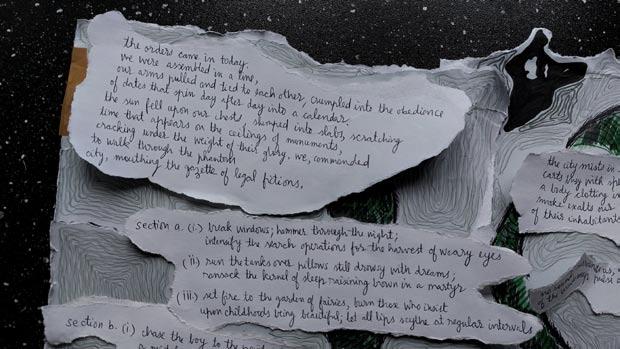 the orders came in today.
we were assembled in a line,
our arms pulled and tied to each other, crumpled into the obedience
of dates that spin day after day into a calendar.
the sun fell upon our chest, slumped into slabs, scratching
time that appears on the ceilings of monuments,
cracking under the weight of their glory, we, commended
to walk through the phantom
city, mouthing the gazette of legal fictions,
section a. (i.) break windows; hammer through the night;
intensify the search operations for the harvest of weary eyes
(ii) run the tanks over pillows still drowsy with dreams;
ransack the kernel of sleep raining down in a martyr
(iii) set fire to the garden of fairies, burn those who insist
upon childhoods being beautiful; let all lips scythe at regular intervals
section b. (i) chase the boy to the
the city mists in
carts
with
a body clotting in
smoke exalts our
of their inhabitants